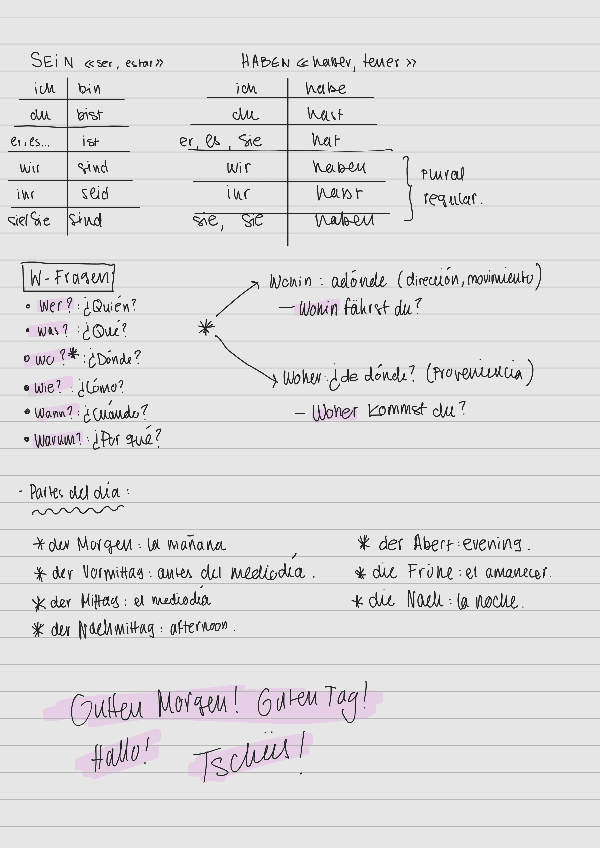 SEiN «ser, estar»
ich bin
du bist
er, es... ist
wir sind
ihr seid
sie/Sie sind
HABEN «haber, tener»
ich habe
du hast
er, es, sie hat
wir haben
ihr habt
sie, Sie haben
Plural
regular.
W-Fragen
• Wer? : ¿Quién?
• Was? : ¿Qué?
• Wo?* : ¿Dónde?
• Wie? : ¿Cómo?
• Wann? : ¿Cuándo?
• Warum? : ¿Por qué?
*
Wohin : adónde (dirección, movimiento)
– Wohin fährst du?
Woher: ¿de dónde? (Proveniencia)
– Woher kommst du?
- Partes del día :
* der Morgen : la mañana
* der Vormittag : antes del mediodía.
* der Mittag : el mediodía
* der Nachmittag : afternoon.
* der Abert : evening.
* die Frühe : el amanecer.
* die Nach : la noche.
Gutten Morgen! Guten Tag!
Hallo! Tschüs!